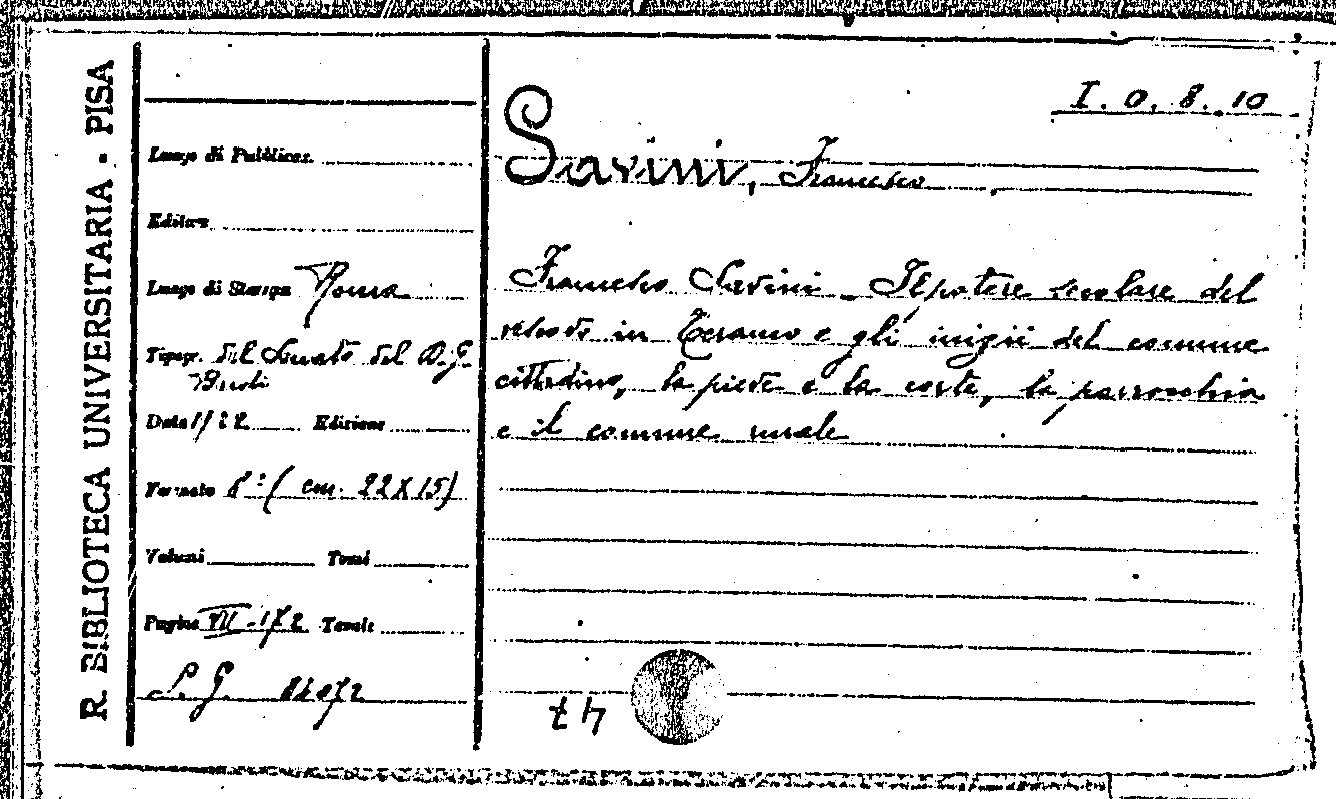 R. BIBLIOTECA UNIVERSITARIA - PISA
I. O. 8. 10
Savini, Francesco
Luogo di Pubblicaz.
Editore
Luogo di Stampa Roma
Tipogr. del Senato del D. G.
Bardi
Data 1/22 Edizione
Formato 8° (cm. 22X15)
Volumi Tomi
Pagine VII-172 Tavole
S. G.
Francesco Savini _ Il potere secolare del
vescovo in Teramo e gli inizii del comune
cittadino, la pieve e la corte, la parrocchia
e il comune rurale